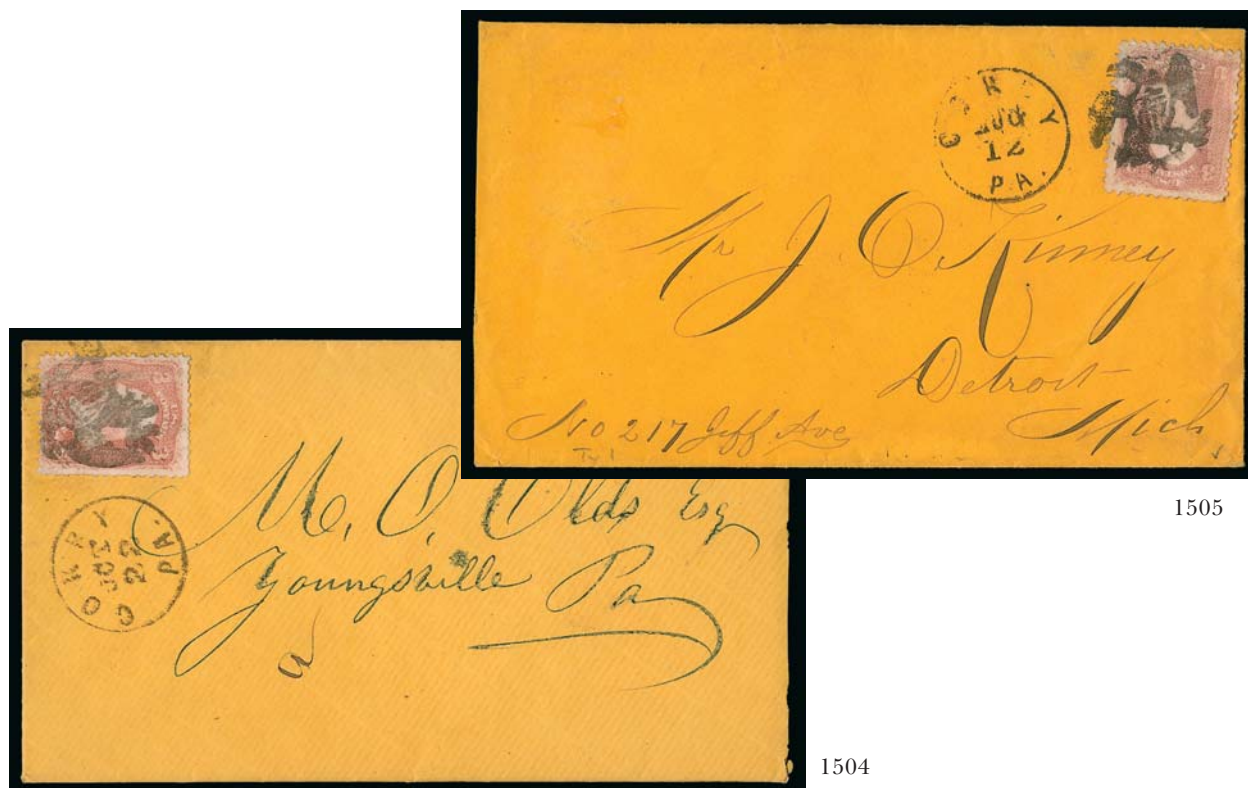 CORRY
AUG
12
PA.
Mr J. O. Kinney
Detroit
Mich
No 217 Jeff Ave
1505
CORRY
OCT
22
PA.
M. O. Olds Esq
Youngsville Pa
1504